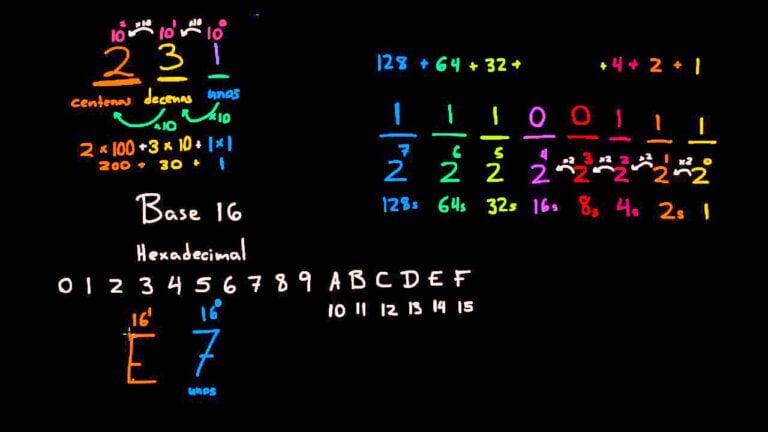 10² x10 10¹ x10 10⁰
2 3 1
centenas decenas unos
x10 x10
2 x 100 + 3 x 10 + 1 x 1
200 + 30 + 1
128 + 64 + 32 + + 4 + 2 + 1
1 1 1 0 0 1 1 1
2⁷ 2⁶ 2⁵ 2⁴ x2 2³ x2 2² x2 2¹ x2 2⁰
128s 64s 32s 16s 8s 4s 2s 1
Base 16
Hexadecimal
0 1 2 3 4 5 6 7 8 9 A B C D E F
10 11 12 13 14 15
16¹ 16⁰
E 7
unos